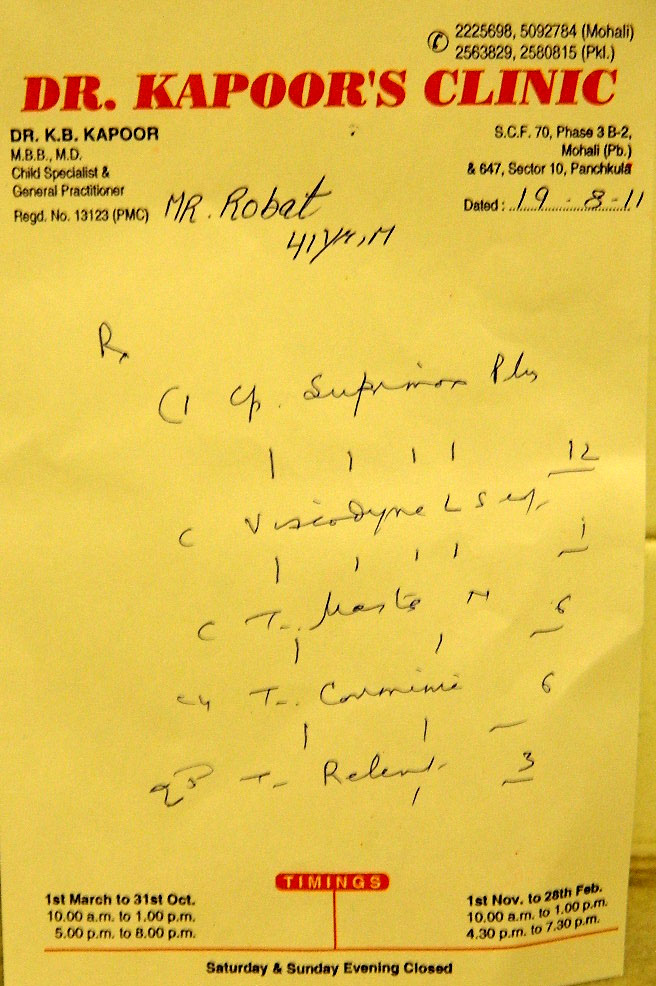 2225698, 5092784 (Mohali)
2563829, 2580815 (Pkl.)
DR. KAPOOR'S CLINIC
DR. K.B. KAPOOR
M.B.B., M.D.
Child Specialist &
General Practitioner
Regd. No. 13123 (PMC)
S.C.F. 70, Phase 3 B-2,
Mohali (Pb.)
& 647, Sector 10, Panchkula
Dated : 19-8-11
MR. Robat
41 yr, M
Rx
(1 Cp. Suprimox Plus
1 1 1 1 12
Viscodyne L Syp.
1 1 1 1 1
T. N 6
1 1
T. 6
1 1
T. Relent 3
1
TIMINGS
1st March to 31st Oct.
10.00 a.m. to 1.00 p.m.
5.00 p.m. to 8.00 p.m.
1st Nov. to 28th Feb.
10.00 a.m. to 1.00 p.m.
4.30 p.m. to 7.30 p.m.
Saturday & Sunday Evening Closed